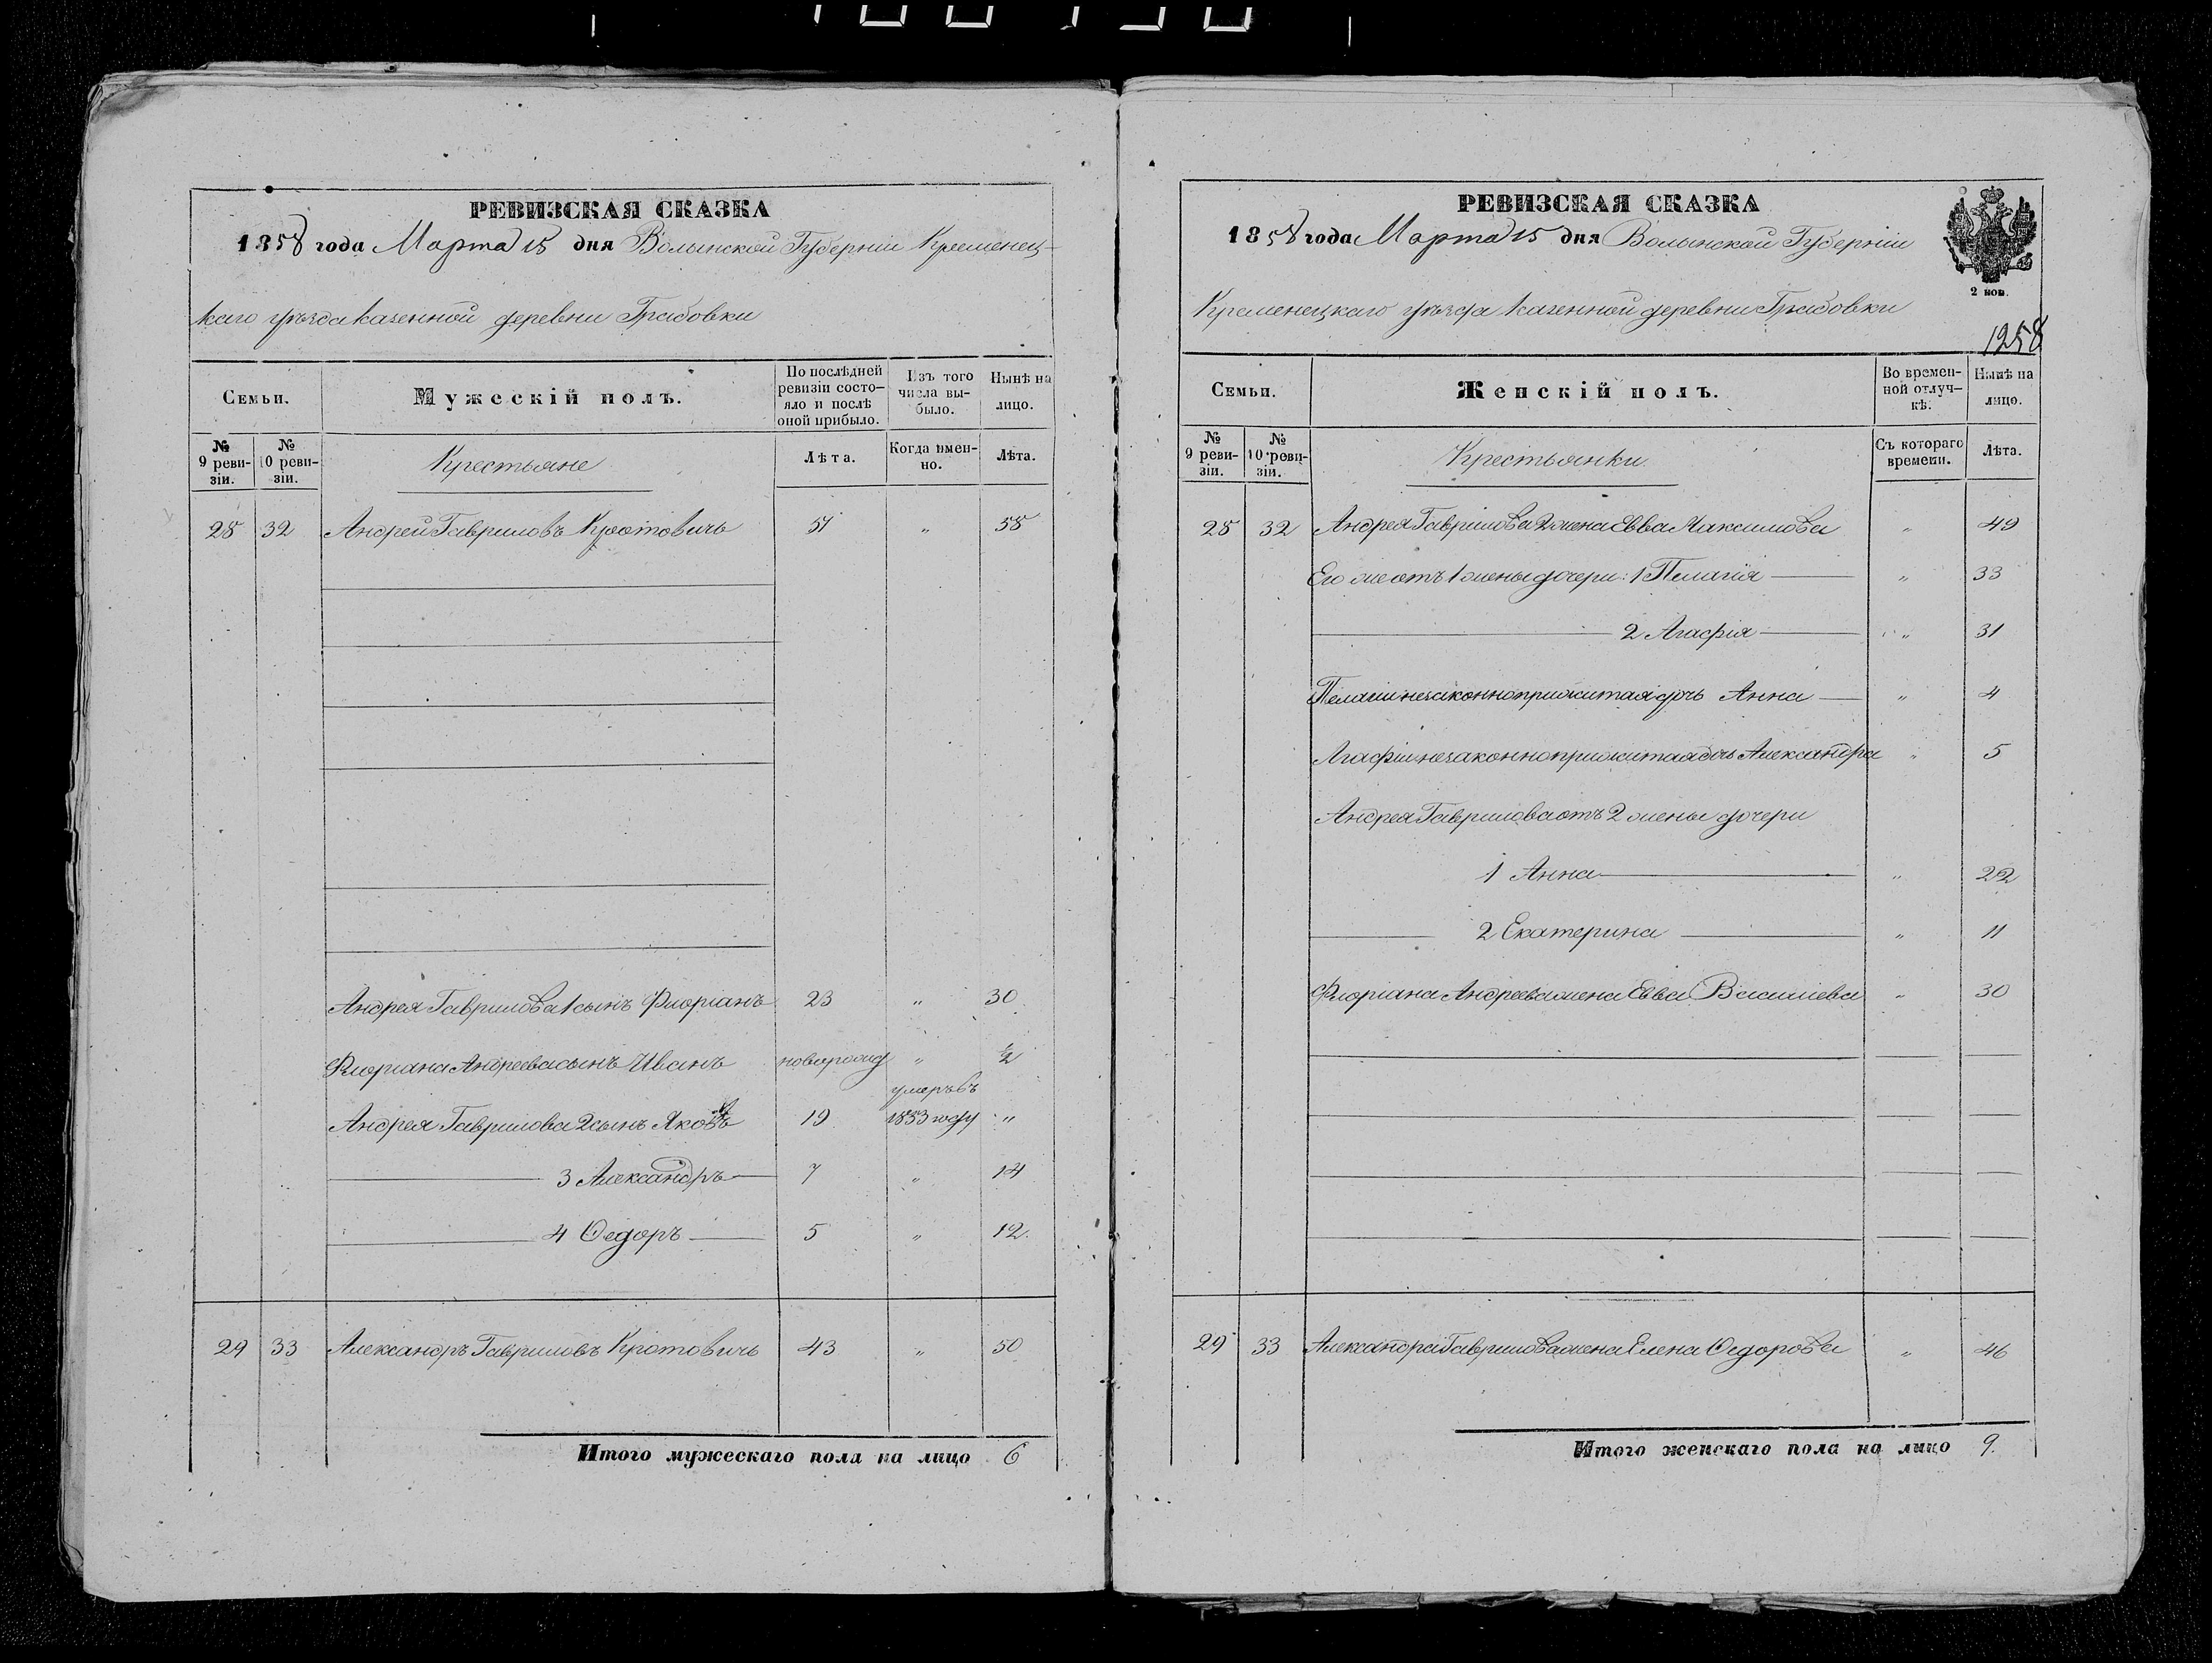 РЕВИЗСКАЯ СКАЗКА
1858 года Марта 15 дня Волынской Губерніи Кременец-
каго уѣзда казенной деревни Грабовки
Семьи.
Мужескій полъ.
По послѣдней ревизіи состо-яло и послѣ оной прибыло.
Изъ того числа вы-было.
Нынѣ на лицо.
№ 9 реви-зіи.
№ 10 реви-зіи.
Крестьяне
Лѣта.
Когда имен-но.
Лѣта.
28 32 Андрей Гавриловъ Кротовичь 51 " 58
Андрея Гаврилова 1 сынъ Флоріанъ 23 " 30
Флоріана Андреева сынъ Иванъ новорожд " ½
умеръ въ
Андрея Гаврилова 2 сынъ Яковъ 19 1853 году "
3 Александръ 7 " 14
4 Ѳедоръ 5 " 12
29 33 Александръ Гавриловъ Кротовичь 43 " 50
Итого мужескаго пола на лицо 6
РЕВИЗСКАЯ СКАЗКА
1858 года Марта 15 дня Волынской Губерніи
2 коп.
Кременецкаго уѣзда казенной деревни Грабовки
1258
Семьи.
Женскій полъ.
Во времен-ной отлуч-кѣ.
Нынѣ на лицо.
№ 9 реви-зіи.
№ 10 реви-зіи.
Крестьянки
Съ котораго времени.
Лѣта.
28 32 Андрея Гаврилова 2 жена Евва Максимова " 49
Его же отъ 1 жены дочери: 1 Пелагія " 33
2 Агафія " 31
Пелагіи незаконноприжитая дочь Анна " 4
Агафіи незаконноприжитая дочь Александра " 5
Андрея Гаврилова отъ 2 жены дочери
1 Анна " 22
2 Екатерина " 11
Флоріана Андреева жена Евва Васильева " 30
29 33 Александра Гаврилова жена Елена Ѳедорова " 46
Итого женскаго пола на лицо 9.